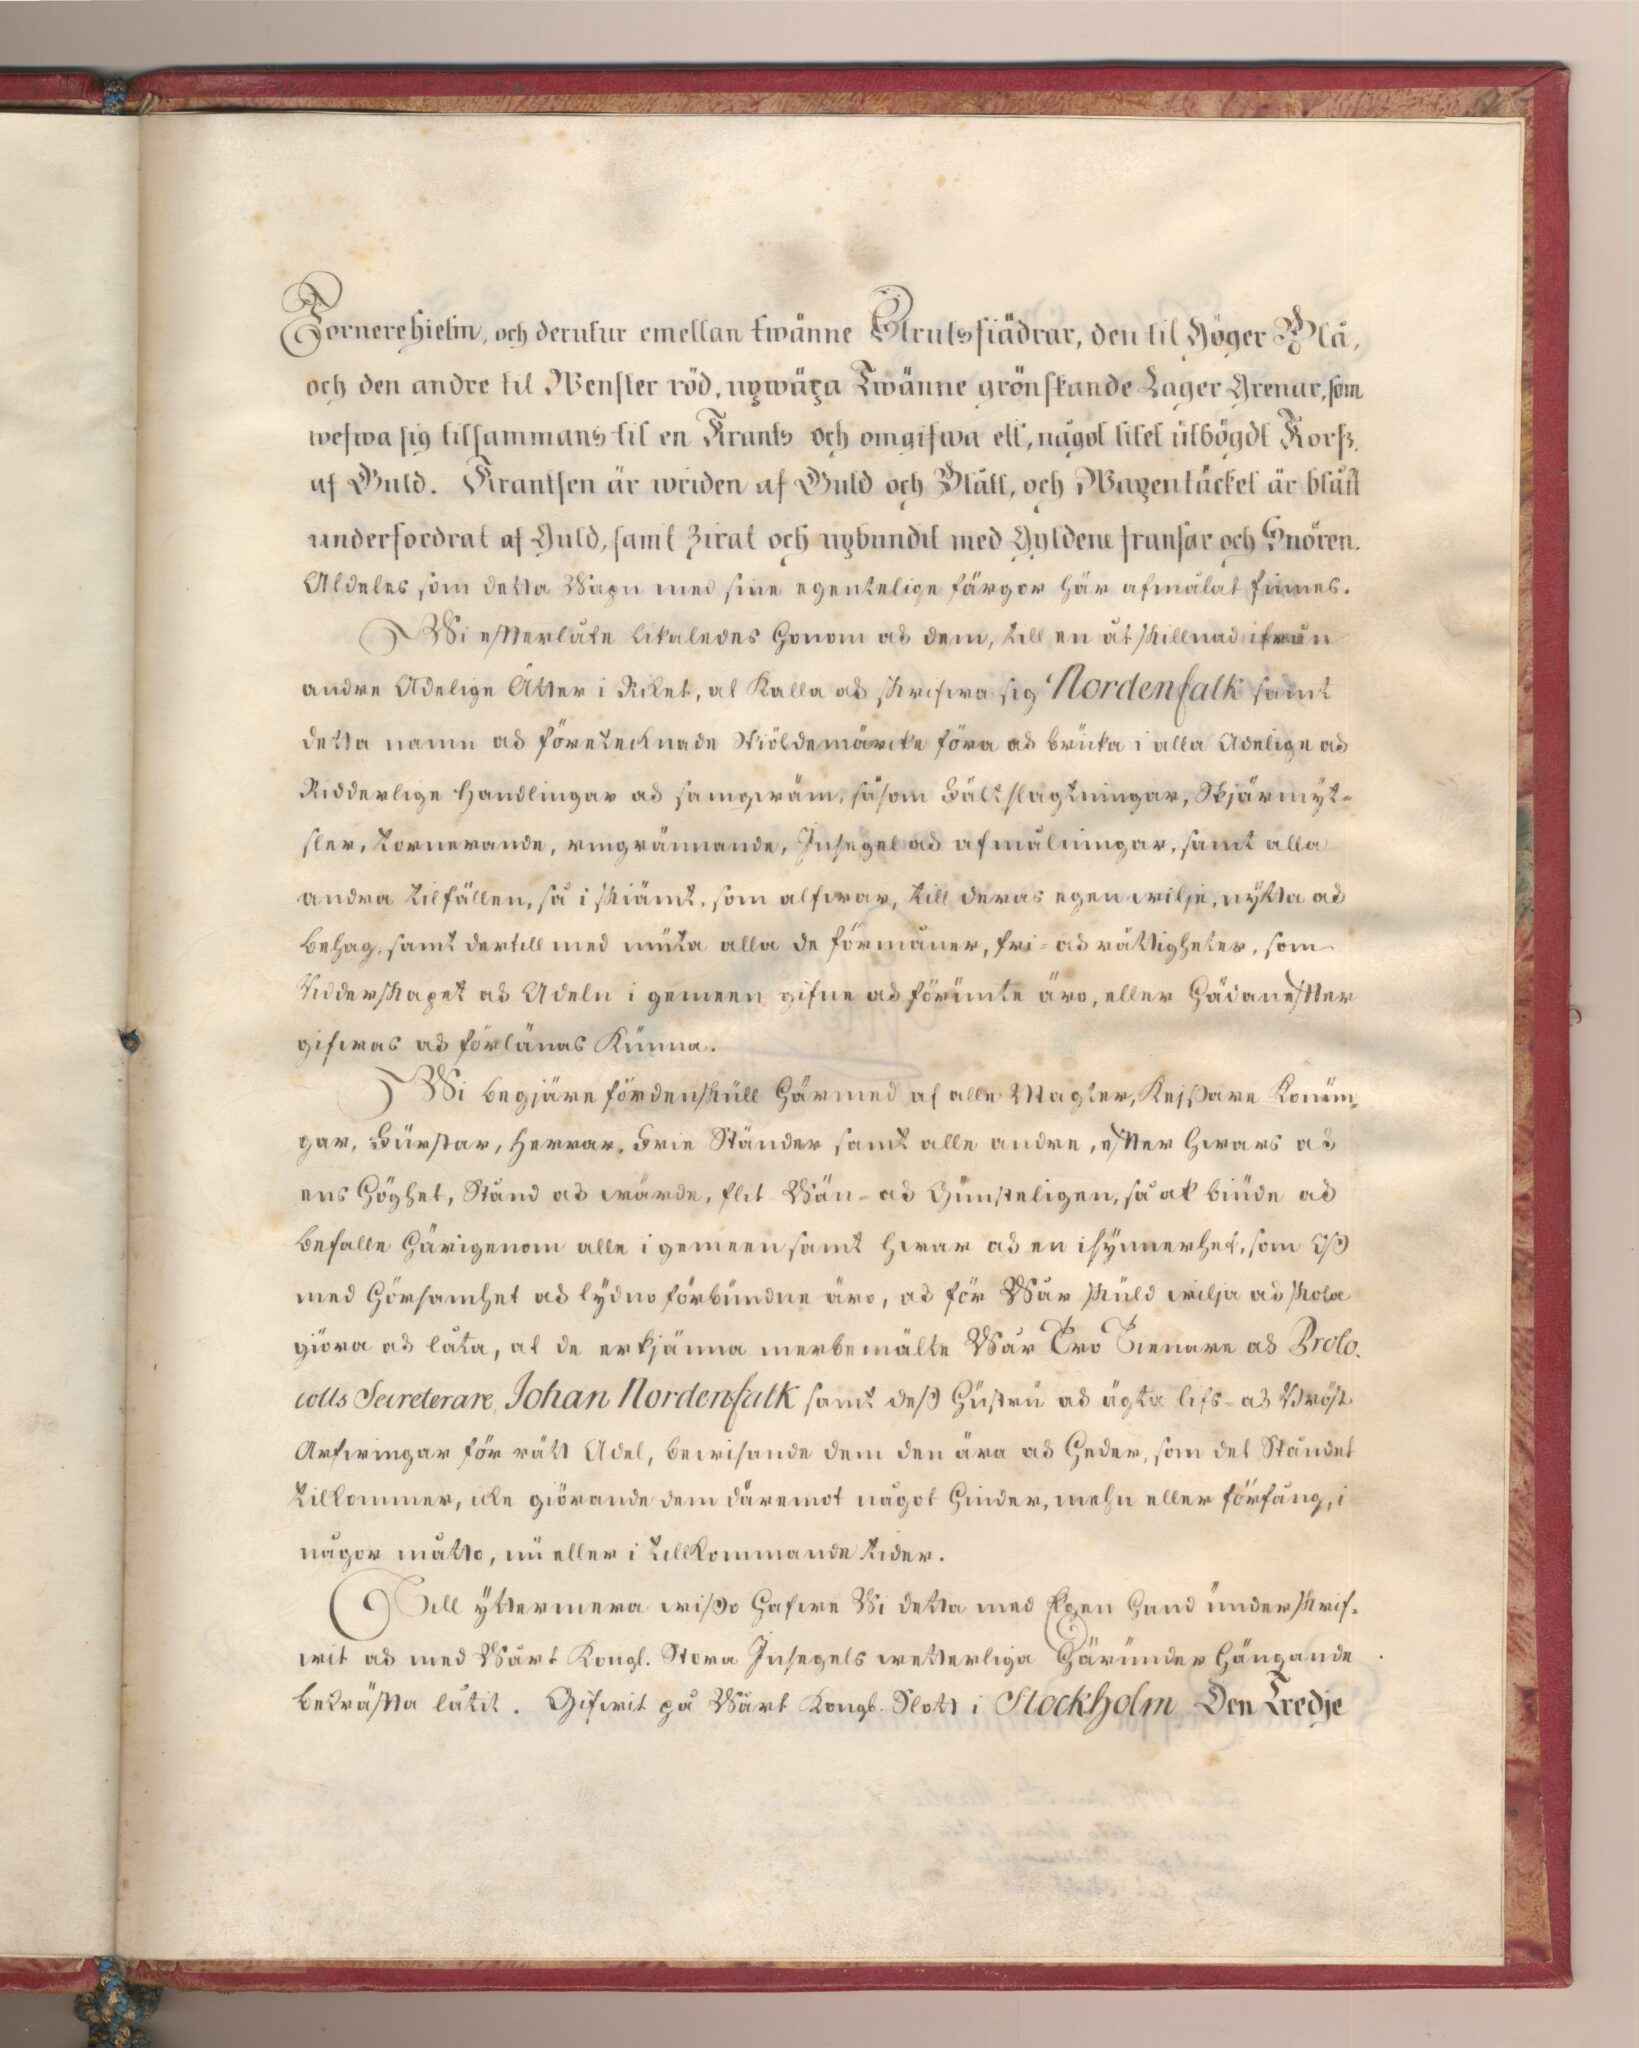 Tornerehielm, och derutur emellan twänne Strutsfiädrar, den til Höger Blå,
och den andre til Wenster röd, upwäxa Twänne grönskande Lager Grenar, som
wefwa sig tilsammans til en Krants och omgifwa ett, något litet utbögdt Korss,
af Guld. Krantsen är wriden af Guld och Blått, och Wapentäcket är blått
underfordrat af Guld, samt Zirat och upbundit med Gyldene fransar och Snören.
Aldeles som detta Wapn med sine egentelige färgor här afmålat finnes.
Wi efterlåte likaledes Honom och dem, till en åtskillnad ifrån
andre Adelige Ätter i Riket, at kalla och skrifwa sig Nordenfalk samt
detta namn och företecknade Skiöldemärcke föra och brúka i alla Adelige och
Ridderlige Handlingar och samqwäm, såsom Fältslagtningar, Skjärmyt-
sler, tornerande, ringrännande, Insegel och afmålningar, samt alla
andra tilfällen, så i skiämt, som alfwar, till deras egen wilje, nytta och
behag, samt dertill med niúta alla de förmåner, fri- och rättigheter, som
Ridderskapet och Adeln i gemeen gifne och förúnte äro, eller hädanefter
gifwas och förlänas kúnna.
Wi begjäre fördenskúll härmed af alle Magter, Kejssare Konún-
gar, Fúrstar, Herrar, Frie Ständer samt alle andre, efter hwars och
ens Höghet, Stånd och wärde, flit Wän- och Gúnsteligen, så ok biúde och
befalle härigenom alle i gemeen samt hwar och en isynnerhet, som Oss
med hörsamhet och lydno förbúndne äro, at för Wår skúld wilja och skola
giöra och låta, at de erkjänna merbemälte Wår Tro Tienare och Proto-
colls Secreterare, Johan Nordenfalk samt dess Hústrú och ägta lifs- och Bröst
Arfwingar för rätt Adel, bewisande dem den ära och heder, som det Ståndet
tilkommer, icke giörande dem däremot något hinder, mehn eller förfång, i
någor måtto, nú eller i tillkommande tider.
Till yttermera wisso hafwe Wi detta med Egen hand únderskrif-
wit och med Wårt Kongl. Stora Insegels wetterliga härúnder hängande
bekräfta låtit. Gifwit på Wårt Kongl. Slott i Stockholm Den Tredje